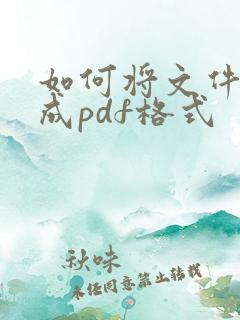 如何将文件
成pdf格式
秋味
未经同意禁止转载